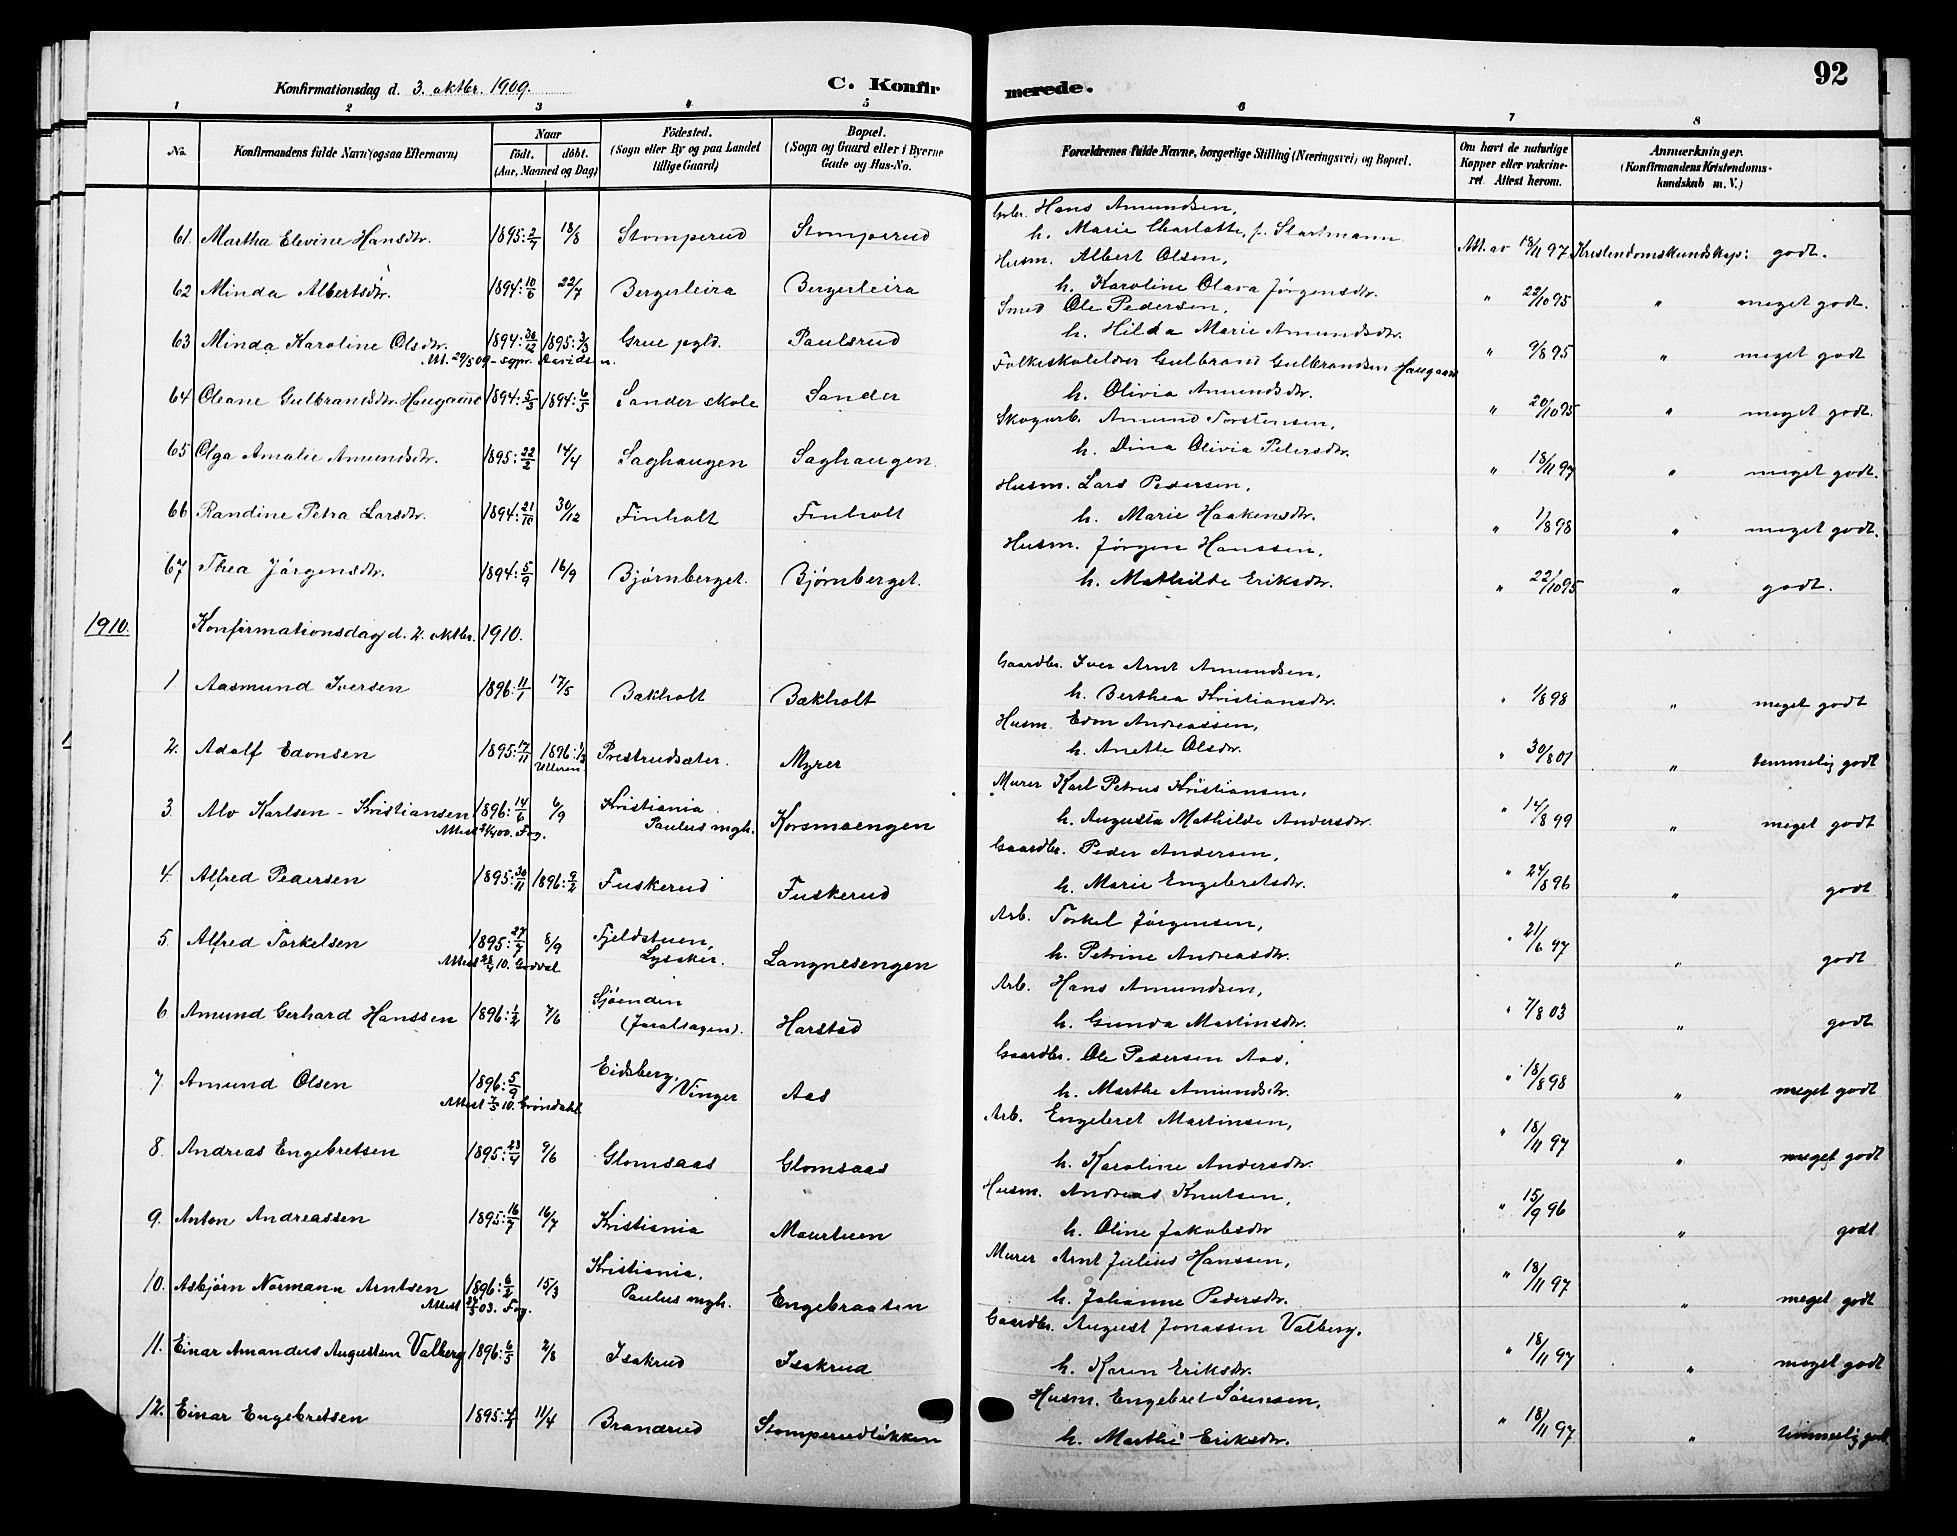 92
Konfirmationsdag d. 3. oktbr. 1909.
C. Konfirmerede.
1 2 3 4 5 6 7 8
No.
Konfirmandens fulde Navn (ogsaa Efternavn)
Naar
födt. döbt.
(Aar, Maaned og Dag)
Födested.
(Sogn eller By og paa Landet
tillige Gaard)
Bopæl.
(Sogn og Gaard eller i Byerne
Gade og Hus-No.
Forældrenes fulde Navne, borgerlige Stilling (Næringsvei) og Bopæl.
Om havt de naturlige
Kopper eller vakcine-
ret. Attest herom.
Anmærkninger.
(Konfirmandens Kristendoms-
kundskab m. V.)
61. Martha Elevine Hansdtr. 1895: 2/7 18/8 Stomperud Stomperud Grbr. Hans Amundsen,
h. Marie Charlotte, f. Startmann Att. av 18/11 97 Kristendomskundskap: godt.
62 Minda Albertsdtr. 1894: 10/6 22/7 Bergerleira Bergerleira Husm. Albert Olsen,
h. Karoline Olava Jørgensdtr. " 22/10 95 " meget godt.
63 Minda Karoline Olsdtr. 1894: 30/12 1895: 3/3 Grue pgld. Paulsrud Smed Ole Pedersen,
h. Hilda Marie Amundsdtr. " 9/8 95 " meget godt
Att. 29/5 09 - sgpr. Davidsen.
64 Oleane Gulbrandsdtr. Haugaard 1894: 5/3 1894: 6/5 Sander skole Sander Folkeskolelærer Gulbrand Gulbrandsen Haugaard
h. Olivia Amundsdtr. " 20/10 95 " meget godt.
65 Olga Amalie Amundsdtr. 1895: 22/2 14/4 Saghaugen Saghaugen Skogarb. Amund Torstensen,
h. Dina Olivia Petersdtr. " 18/11 97 " meget godt.
66 Randine Petra Larsdtr. 1894: 21/10 30/12 Finholt Finholt Husm. Lars Pedersen,
h. Marie Haakensdtr. " 1/8 98 " meget godt.
67 Thea Jörgensdtr. 1894: 5/9 16/9 Bjørnberget. Bjørnberget. Husm. Jørgen Hanssen,
h. Mathilde Eriksdtr. " 22/10 95 " godt.
1910. Konfirmationsdag d. 2. oktbr. 1910.
1. Aasmund Iversen 1896: 11/1 17/5 Bakholt Bakholt Gaardbr. Iver Arnt Amundsen,
h. Berthea Kristiansdtr. " 1/8 98 " meget godt
2. Adolf Edonsen 1895: 17/11 1896: 1/3 Prestrudsæter. Myrer Husm. Edon Andreassen,
h. Anette Olsdtr. " 30/8 01 " temmelig godt
Ulleren.
3. Alv Karlsen - Kristiansen 1896: 14/6 6/9 Kristiania Paulus mgh. Korsmoengen Murer Karl Petrus Kristiansen,
h. Augusta Mathilde Andersdtr. " 14/8 99 " meget godt
4. Alfred Pedersen 1895: 30/11 1896: 9/2 Fuskerud Fuskerud Gaardbr. Peder Andersen,
h. Marie Engebretsdtr. " 24/8 96 " godt
5. Alfred Torkelsen 1895: 27/7 8/9 Fjeldstuen, Lysaker. Langnesengen Arb. Torkel Jørgensen,
h. Petrine Andreasdtr. " 21/6 97 " godt
6 Amund Gerhard Hanssen 1896: 1/2 7/6 Sjøenden (Jaralsagen). Harstad Arb. Hans Amundsen,
h. Gunda Martinsdtr. " 7/8 03 " godt
7. Amund Olsen 1896: 5/9 Eidsberg, Vinger Aas Gaardbr. Ole Pedersen Aas,
h. Marthe Amundsdtr. " 18/8 98 " meget godt
Attest 7/5 10. Gröndahl
8. Andreas Engebretsen 1895: 23/4 9/6 Glomsaas Glomsaas Arb. Engebret Martinsen,
h. Karoline Andersdtr. " 18/11 97 " meget godt
9. Anton Andreassen 1895: 16/7 16/7 Kristiania Maurtuen Husm. Andreas Knutsen,
h. Oline Jakobsdtr " 15/9 96 " godt
10. Asbjörn Normann Arntsen 1896: 6/2 15/3 Kristiania. Paulus mgh. Engebraaten Murer Arnt Julius Hanssen,
h. Johanne Pedersdtr. " 18/11 97 " meget godt
11. Einar Amandus Augustsen Valberg 1896: 6/5 2/8 Isakrud Isakrud Gaardbr. August Jonassen Valberg.
h. Karen Eriksdtr. " 18/11 97 " meget godt
12. Einar Engebretsen 1895: 11/4 Branderud Stomperudløkken Husm. Engebret Sörensen,
h. Marthe Eriksdtr. " 18/11 97 " temmelig godt.